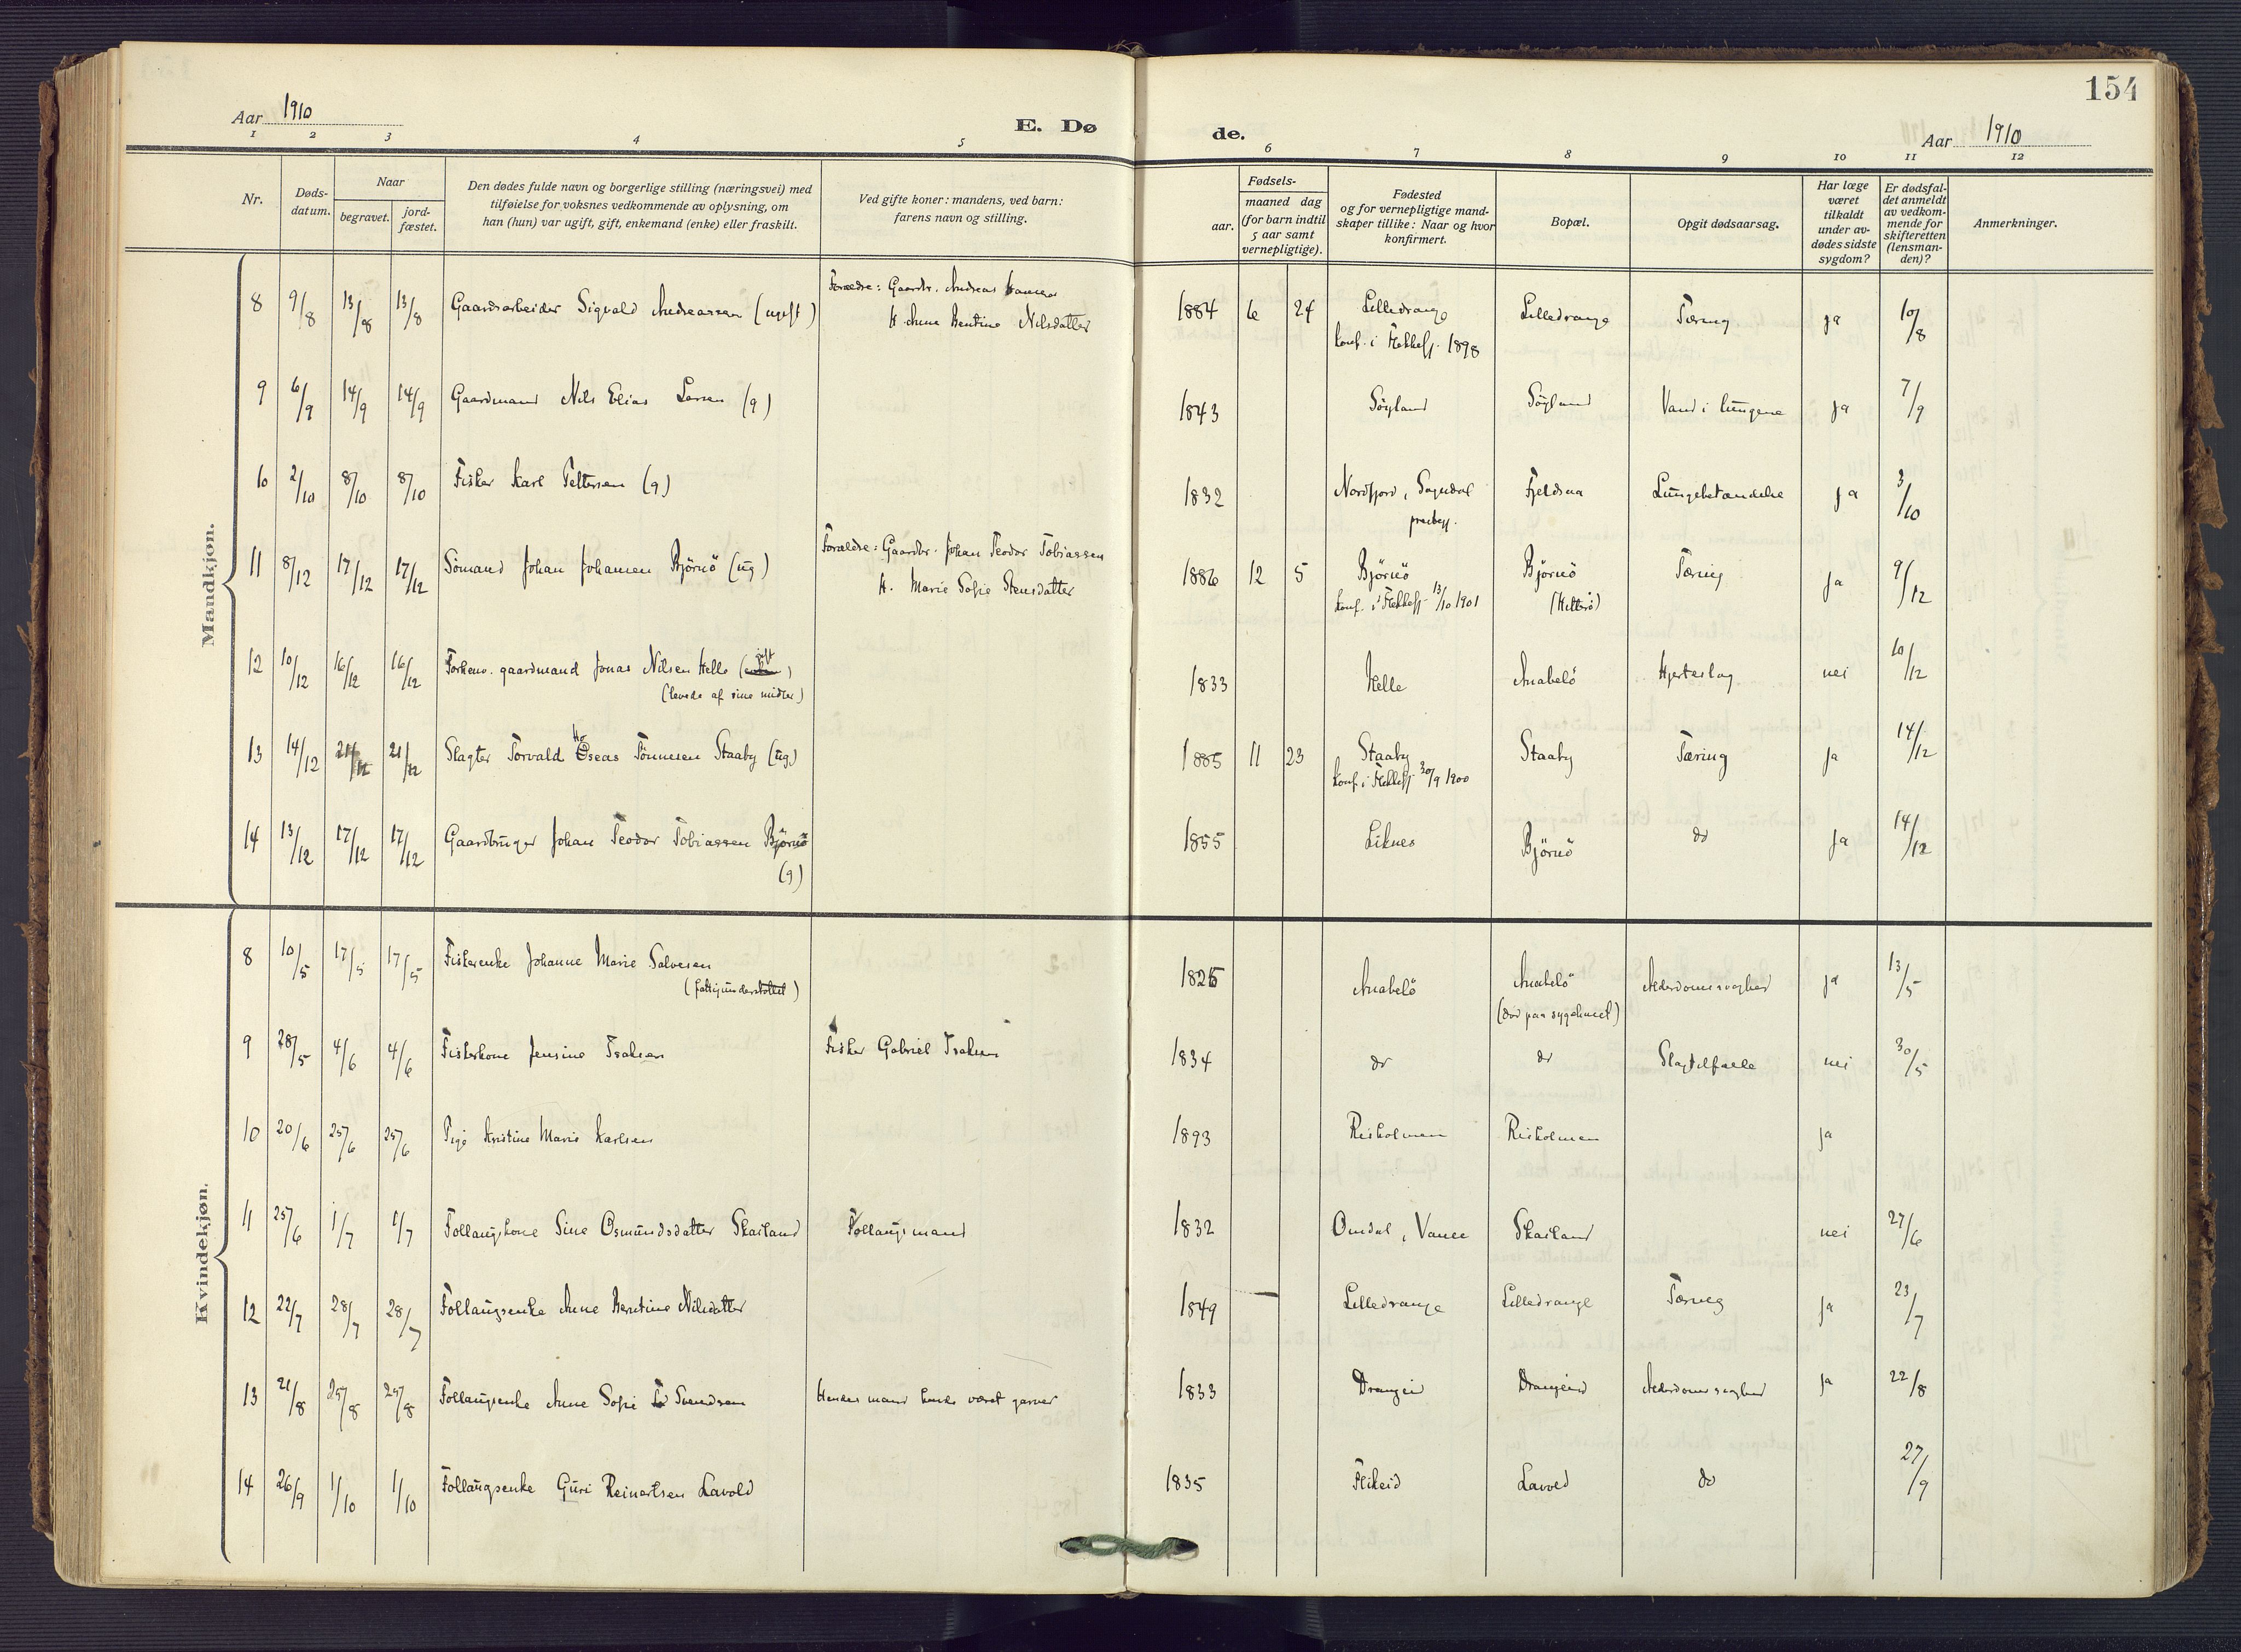 154
Aar 1910
E. Dø
de.
Aar 1910
1 2 3 4 5 6 7 8 9 10 11 12
Nr.
Døds-
datum.
Naar
begravet.
jord-
fæstet.
Den dødes fulde navn og borgerlige stilling (næringsvei) med
tilføielse for voksnes vedkommende av oplysning, om
han (hun) var ugift, gift, enkemand (enke) eller fraskilt.
Ved gifte koner: mandens, ved barn:
farens navn og stilling.
Fødsels-
aar.
maaned dag
(for barn indtil
5 aar samt
vernepligtige).
Fødested
og for vernepligtige mand-
skaper tillike: Naar og hvor
konfirmert.
Bopæl.
Opgit dødsaarsag.
Har læge
været
tilkaldt
under av-
dødes sidste
sygdom?
Er dødsfal-
det anmeldt
av vedkom-
mende for
skifteretten
(lensman-
den)?
Anmerkninger.
Mandkjøn.
8 9/8 13/8 13/8 Gaardsarbeider Sigvald Andreassen (ugift) Forældre: Gaardbr. Andreas Hansen
H. Anne Berntine Nilsdatter
1884 6 24 Lilledrange Lilledrange Tæring ja 10/8
konf. i Flekkefj. 1898
9 6/9 14/9 14/9 Gaardmand Nils Elias Larsen (g) 1843 Söyland Söyland Vand i lungene ja 7/9
10 2/10 8/10 8/10 Fisker Karl Pettersen (g) 1832 Nordfjord, Sogndal Fjeldsaa Lungebetændelse ja 3/10
prestegj.
11 8/12 17/12 17/12 Sömand Johan Johansen Björnö (ug) Forældre: Gaardbr. Johan Teodor Tobiassen
H. Marie Sofie Stensdatter
1886 12 5 Björnö Björnö Tæring ja 9/12
konf. i Flekkefj. 13/10 1901 (Hitterö)
12 10/12 16/12 16/12 Forhenv. gaardmand Jonas Nilsen Helle (gift)
(levede af sine midler)
1833 Helle Anabelö Hjerteslag nei 10/12
13 14/12 21/12 21/12 Slagter Torvald Hoseas Tönnesen Staaby (ug) 1885 11 23 Staaby Staaby Tæring ja 14/12
konf. i Flekkefj 30/9 1900
14 13/12 17/12 17/12 Gaardbruger Johan Teodor Tobiassen Björnö
(g)
1855 Liknes Björnö do ja 14/12
Kvindekjøn.
8 10/5 17/5 17/5 Fiskerenke Johanne Marie Salvesen
(fattigunderstöttet)
1826 Anabelö Anabelö Alderdomssvaghed ja 13/5
(död paa sygehuset)
9 28/5 4/6 4/6 Fiskerkone Jensine Isaksen Fisker Gabriel Isaksen 1834 do do Slagtilfælde nei 30/5
10 20/6 25/6 25/6 Pige Kristine Marie Karlsen 1893 Risholmen Risholmen ja
11 25/6 1/7 1/7 Follaugskone Sine Osmundsdatter Skailand Follaugsmand 1832 Omdal, Vanse Skailand nei 27/6
12 22/7 28/7 28/7 Follaugsenke Anne Berntine Nilsdatter 1849 Lilledrange Lilledrange Tæring ja 23/7
13 21/8 25/8 25/8 Follaugsenke Anne Sofie Svendsen Hendes mand havde været garver 1833 Drangeid Drangeid Alderdomssvaghed ja 22/8
14 26/9 1/10 1/10 Follaugsenke Guri Reinertsen Lavold 1835 Flikeid Lavold do 27/9